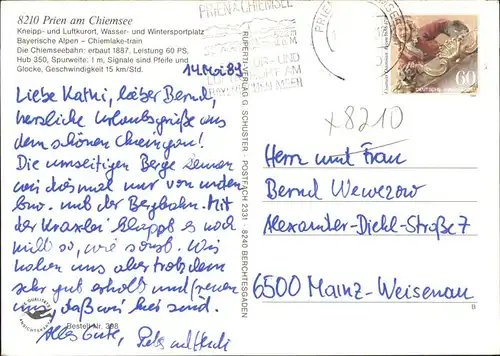 8210 Prien am Chiemsee
Kneipp- und Luftkurort, Wasser- und Wintersportplatz
Bayerische Alpen - Chiemlake-train
Die Chiemseebahn: erbaut 1887. Leistung 60 PS,
Hub 350, Spurweite: 1 m, Signale sind Pfeife und
Glocke, Geschwindigkeit 15 km/Std.
14. Mai 89
Liebe Kathi, lieber Bernd,
herzliche Urlaubsgrüße aus
dem schönen Chiemgau!
Die umseitigen Berge kennen
wir diesmal nur von unten
bzw. mit der Bergbahn. Mit
der Kraxlei klappt es noch
nicht so, wie sonst. Wir
haben uns aber trotzdem
sehr gut erholt und freuen
uns, daß wir hier sind.
Alles Gute,
Bestell-Nr. 398
RUPERTI-VERLAG G. SCHUSTER - POSTFACH 2331 - 8240 BERCHTESGADEN
PRIEN A CHIEMSEE
60
DEUTSCHE BUNDESPOST
x8210
Herrn und Frau
Bernd Wewezow
Alexander-Diehl-Straße 7
6500 Mainz-Weisenau
B